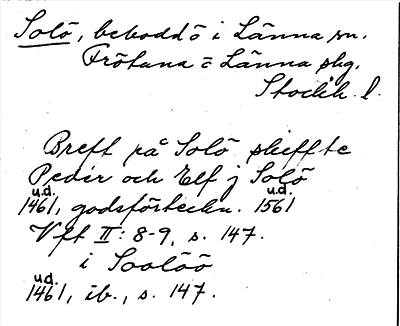 Solö, bebodd ö i Länna sn.
Frötuna o Länna skg.
Stockh. l.
Breff på Solö skiffte
Peder och Elf j Solö
u.d. u.d.
1461, godsförteckn. 1561
Vft II: 8-9, s. 147.
i Soolöö
u.d.
1461, ib., s. 147.